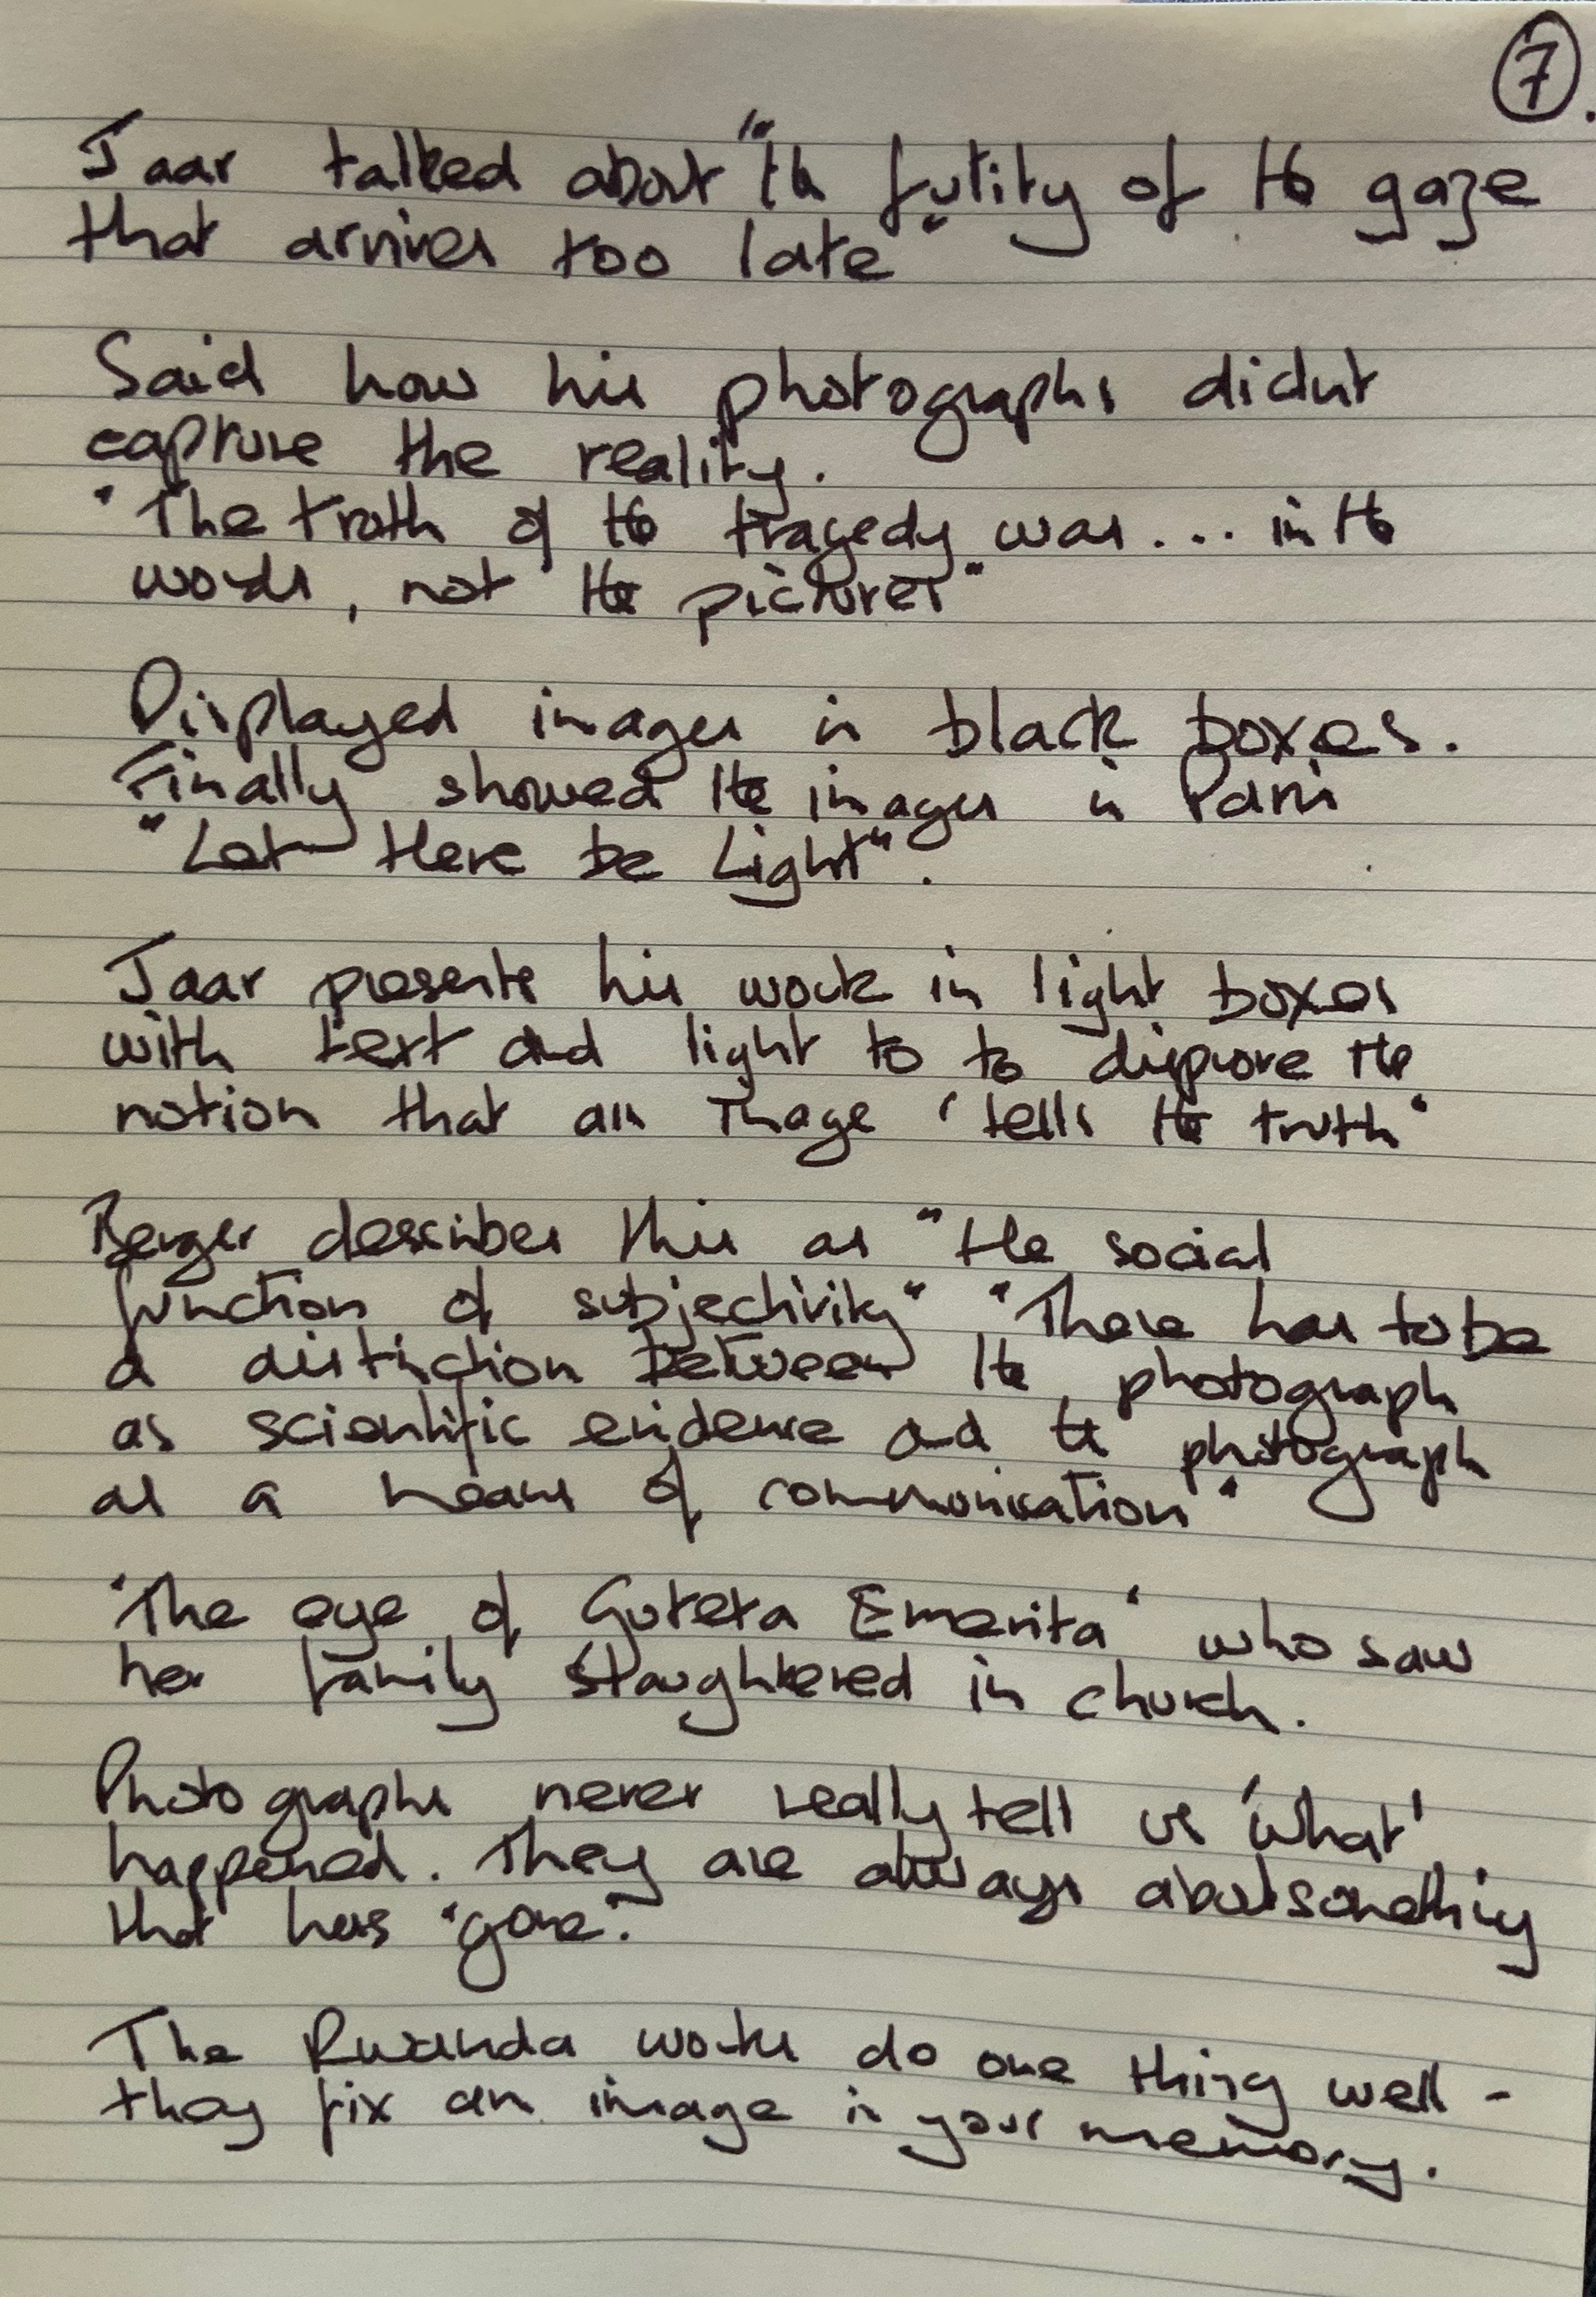 7.
Jaar talked about "the futility of the gaze
that arrives too late"
Said how his photographs didnt
capture the reality.
"The truth of the tragedy was... in the
words, not the pictures"
Displayed images in black boxes.
Finally showed the images in Paris
"Let there be Light".
Jaar presents his work in light boxes
with text and light to to disprove the
notion that an image 'tells the truth'
Berger describes this as "the social
function of subjectivity" "There has to be
a distinction between the photograph
as scientific evidence and the photograph
as a means of communication"
'The eye of Guteta Emerita' who saw
her family slaughtered in church.
Photographs never really tell us 'what'
happened. They are always about something
that has "gone".
The Rwanda works do one thing well -
they fix an image in your memory.